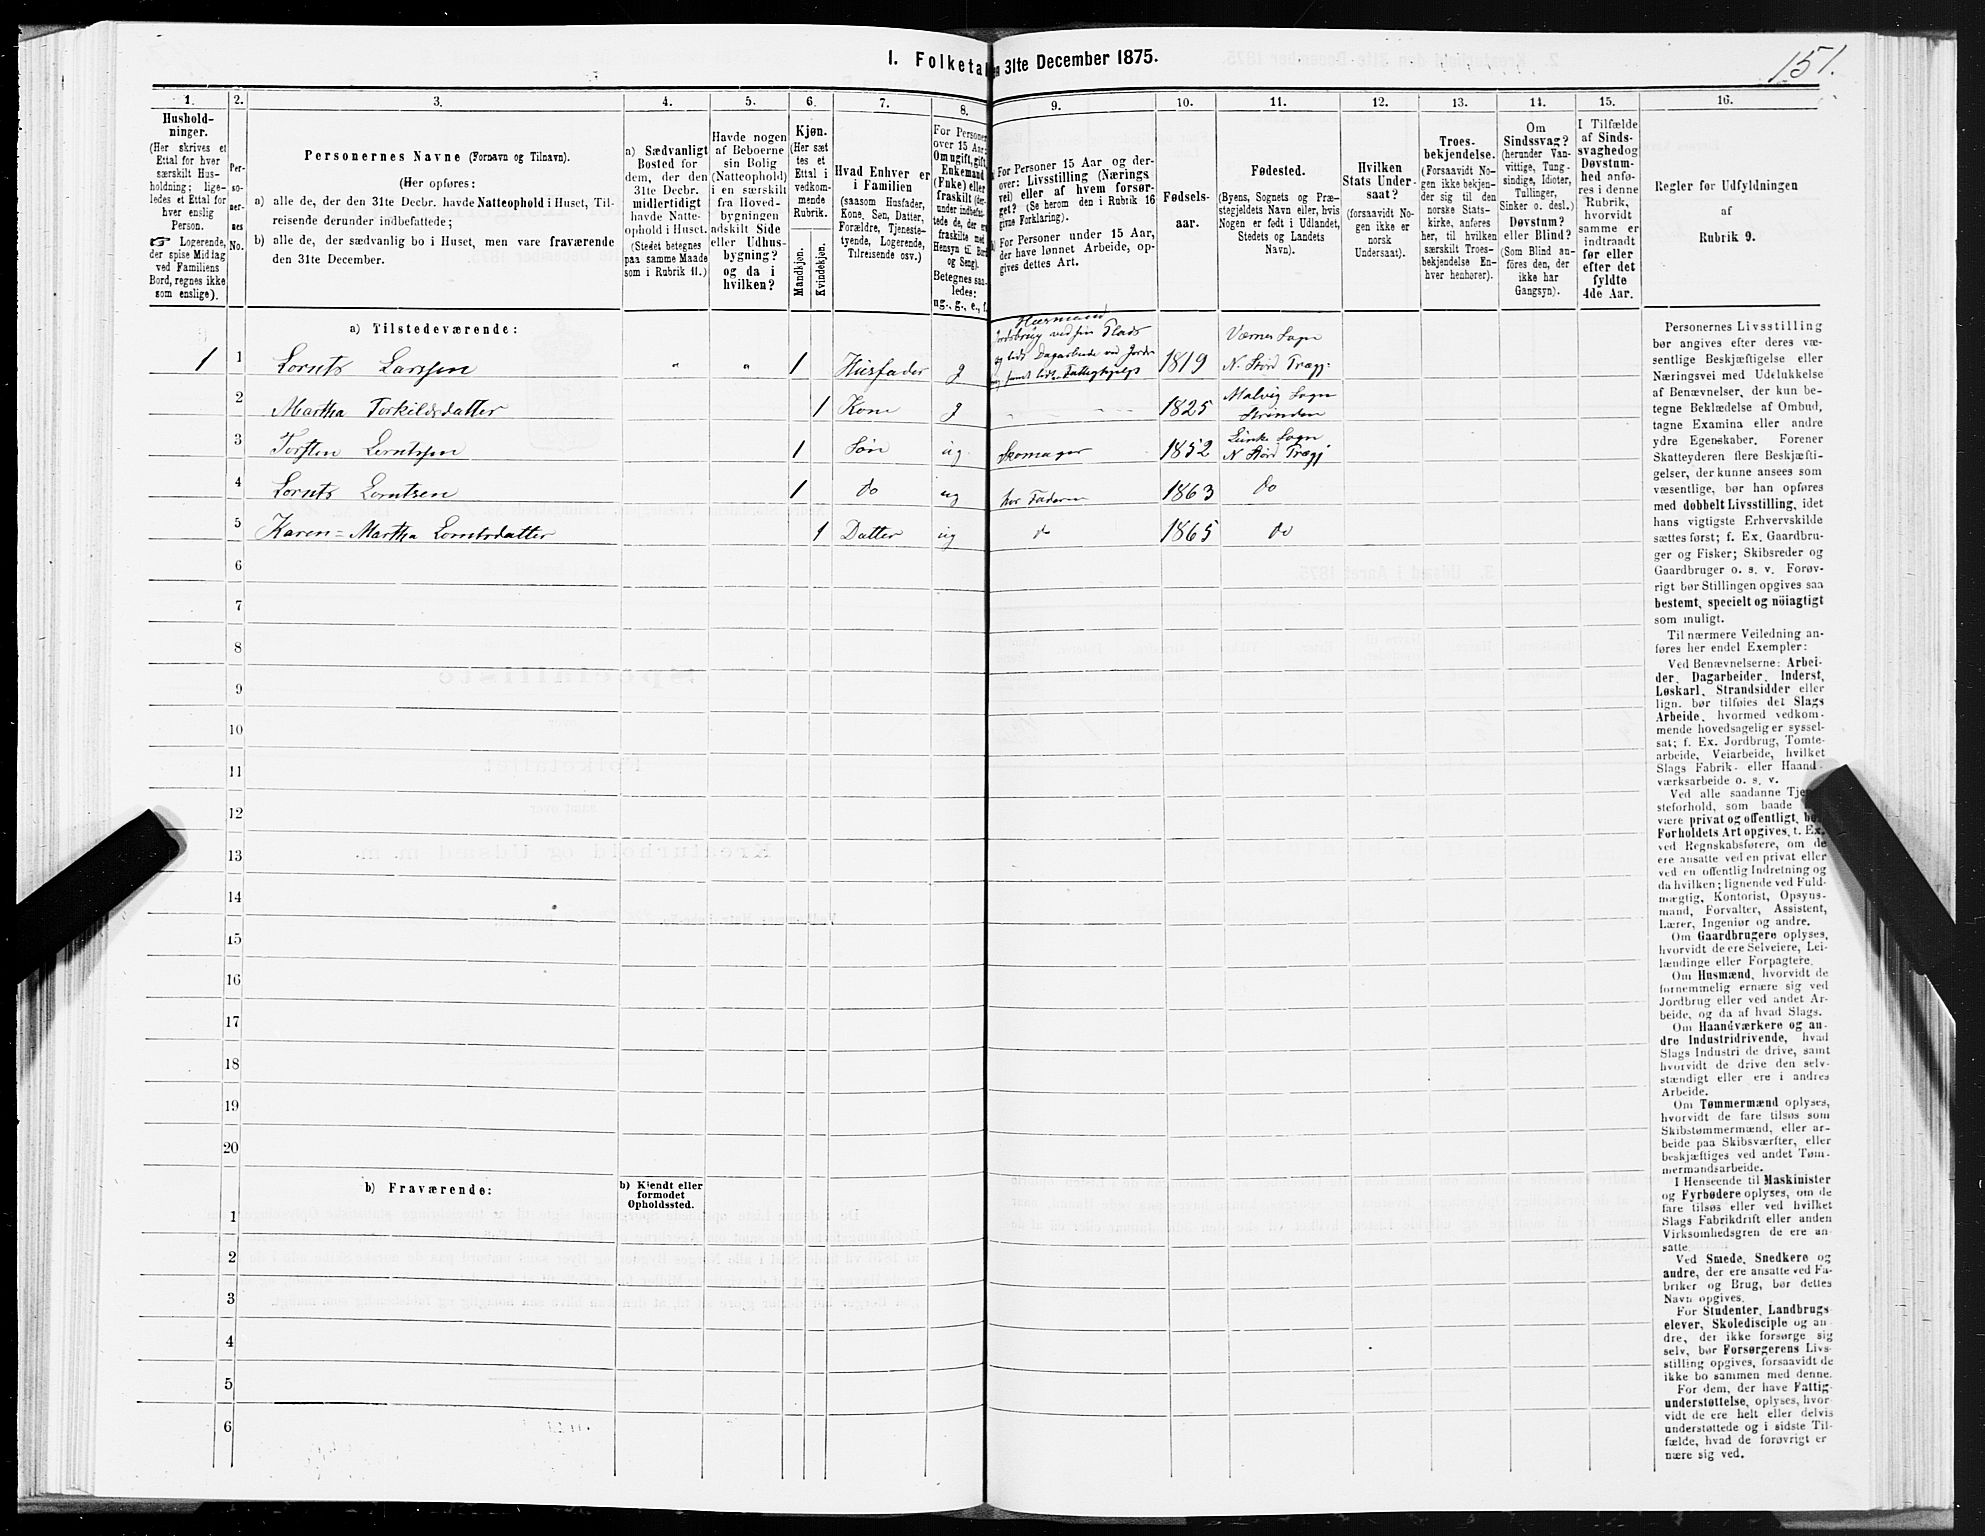 151.
I. Folketal
31te December 1875.
1.
2.
3.
4.
5.
6.
7.
8.
9.
10.
11.
12.
13.
14.
15.
16.
Hushold-
ninger.
(Her skrives et
Ettal for hver
særskilt Hus-
holdning; lige-
ledes et Ettal for
hver enslig
Person.
☞ Logerende,
der spise Middag
ved Familiens
Bord, regnes ikke
som enslige).
Per-
so-
ner-
nes
No.
Personernes Navne (Fornavn og Tilnavn).
(Her opføres:
a) alle de, der den 31te Decbr. havde Natteophold i Huset, Til-
reisende derunder indbefattede;
b) alle de, der sædvanlig bo i Huset, men vare fraværende
den 31te December.
a) Sædvanligt
Bosted for
dem, der den
31te Decbr.
midlertidigt
havde Natte-
ophold i Huset.
(Stedet betegnes
paa samme Maade
som i Rubrik 11.)
Havde nogen
af Beboerne
sin Bolig
(Natteophold)
i en særskilt
fra Hoved-
bygningen
adskilt Side
eller Udhus-
bygning?
og da i
hvilken?
Kjøn.
(Her sæt-
tes et
Ettal i
vedkom-
mende
Rubrik.
Mandkjøn.
Kvindekjøn.
Hvad Enhver er
i Familien
(saasom Husfader,
Kone, Søn, Datter,
Forældre, Tjeneste-
tyende, Logerende,
Tilreisende osv.)
For Personer
over 15 Aar:
Om ugift, gift,
Enkemand
(Enke) eller
fraskilt (der-
under indbefat-
tede de, der ere
fraskilte med
Hensyn til Bord
og Seng).
Betegnes saa-
ledes:
ug., g., e., f.
For Personer 15 Aar og der-
over: Livsstilling (Nærings
vei) eller af hvem forsør-
get? (Se herom den i Rubrik 16
givne Forklaring).
For Personer under 15 Aar,
der have lønnet Arbeide, op-
gives dettes Art.
Fødsels-
aar.
Fødested.
(Byens, Sognets og Præ-
stegjeldets Navn eller, hvis
Nogen er født i Udlandet,
Stedets og Landets
Navn).
Hvilken
Stats Under-
saat?
(forsaavidt No-
gen ikke er
norsk
Undersaat).
Troes-
bekjendelse.
(Forsaavidt No-
gen ikke bekjen-
der sig til den
norske Stats-
kirke, anføres
her, til hvilken
særskilt Troes-
bekjendelse En-
hver henhører).
Om
Sindssvag?
(herunder Van-
vittige, Tung-
sindige, Idioter,
Tullinger,
Sinker o. desl.)
Døvstum?
eller Blind?
(Som Blind an-
føres den, der
ikke har
Gangsyn).
I Tilfælde
af Sinds-
svaghed og
Døvstum-
hed anfø-
res i denne
Rubrik,
hvorvidt
samme er
indtraadt
før eller
efter det
fyldte
4de Aar.
Regler for Udfyldningen
af
Rubrik 9.
a) Tilstedeværende:
Husmand
Jordbrug ved sin Plads
og lidt Dagarbeide ved Jordbr
samt lidt Fattighjelp
1 1 Lornts Larssen " " 1 Husfader g 1819 Værnes Sogn N. Stjørd Prægj.
2 Martha Torkildsdatter 1 Kone g 1825 Malvig Sogn Strinden
3 Torsten Lorntsen 1 Søn ug. Skomager 1852 Lånke Sogn N. Stjørd Prægj
4 Lornts Lorntsen 1 do ug hos Faderen 1863 do
5 Karen=Martha Lorntsdatter 1 Datter ug do 1865 do
6
7
8
9
10
11
12
13
14
15
16
17
18
19
20
b) Fraværende:
b) Kjendt eller
formodet
Opholdssted.
1
2
3
4
5
6
Personernes Livsstilling
bør angives efter deres væ-
sentlige Beskjæftigelse eller
Næringsvei med Udelukkelse
af Benævnelser, der kun be-
tegne Beklædelse af Ombud,
tagne Examina eller andre
ydre Egenskaber. Forener
Skatteyderen flere Beskjæfti-
gelser, der kunne ansees som
væsentlige, bør han opføres
med dobbelt Livsstilling, idet
hans vigtigste Erhvervskilde
sættes først; f. Ex. Gaardbru-
ger og Fisker; Skibsreder og
Gaardbruger o. s. v. Forøv-
rigt bør Stillingen opgives saa
bestemt, specielt og nöiagtigt
som muligt.
Til nærmere Veiledning an-
føres her endel Exempler:
Ved Benævnelserne: Arbei-
der, Dagarbeider, Inderst,
Løskarl, Strandsidder eller
lign. bør tilføies det Slags
Arbeide, hvormed vedkom-
mende hovedsagelig er syssel-
sat; f. Ex. Jordbrug, Tomte-
arbeide, Veiarbeide, hvilket
Slags Fabrik- eller Haand-
værksarbeide o. s. v.
Ved alle saadanne Tje
steforhold, som baade
være privat og offentligt, bør
Forholdets Art opgives, t. Ex.
ved Regnskabsførere, om de
ere ansatte ved en privat eller
ved en offentlig Indretning og
da hvilken; lignende ved Fuld-
mægtig, Kontorist, Opsyns-
mand, Forvalter, Assistent,
Lærer, Ingeniør og andre.
Om Gaardbrugere oplyses,
hvorvidt de ere Selveiere, Lei-
lændinge eller Forpagtere.
Om Husmænd, hvorvidt de
fornemmelig ernære sig ved
Jordbrug eller ved andet Ar-
beide, og da af hvad Slags.
Om Haandværkere og an-
dre Industridrivende, hvad
Slags Industri de drive, samt
hvorvidt de drive den selv-
stændigt eller ere i andres
Arbeide.
Om Tømmermænd oplyses,
hvorvidt de fare tilsøs som
Skibstømmermænd, eller ar-
beide paa Skibsværfter, eller
beskjæftiges ved andet Tøm-
mermandsarbeide.
I Henseende til Maskinister
og Fyrbødere oplyses, om de
fare tilsøs eller ved hvilket
Slags Fabrikdrift eller anden
Virksomhedsgren de ere an-
satte.
Ved Smede, Snedkere og
andre, der ere ansatte ved Fa-
briker og Brug, bør dettes
Navn opgives.
For Studenter, Landbrugs-
elever, Skoledisciple og an-
dre, der ikke forsørge sig
selv, bør Forsørgerens Livs-
stilling opgives, forsaavidt de
ikke bo sammen med denne.
For dem, der have Fattig-
understøttelse, oplyses, hvor-
vidt de ere helt eller delvis
understøttede og i sidste Til-
fælde, hvad de forøvrigt er
nære sig ved.